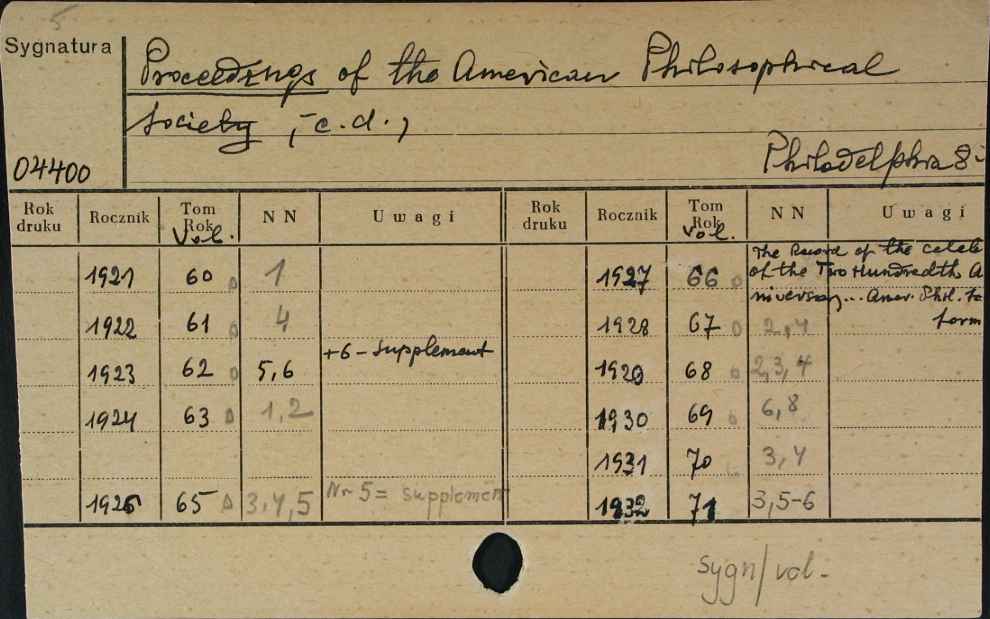 5
Sygnatura
Proceedings of the American Philosophical
Society, (c.d.)
04400
Philadelphia 8°
Rok druku Rocznik Tom Rok Vol. N N Uwagi Rok druku Rocznik Tom Rok Vol. N N Uwagi
1921 60 1 1927 66 The Record of the celeb
of the Two Hundredth A
niversary... Amer. Phil.
1922 61 4 1928 67 2,4 form
+6 - supplement
1923 62 5,6 1929 68 2,3,4
1924 63 1,2 1930 69 6,8
1931 70 3,4
1926 65 3,4,5 Nr 5 = supplemen 1932 71 3,5-6
sygn/vol.